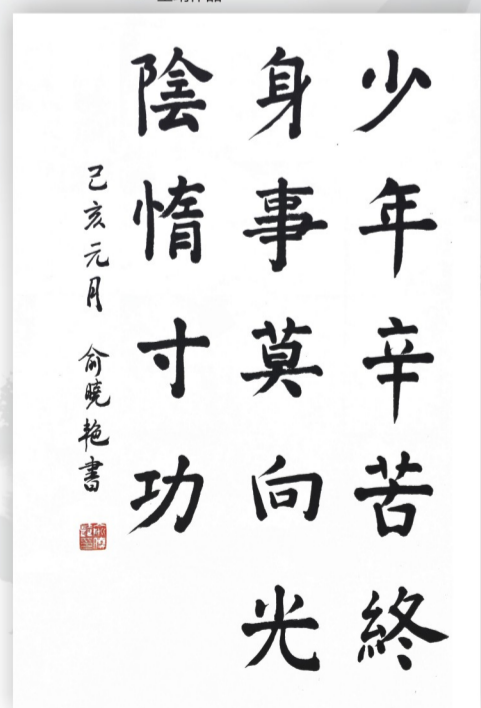 少年辛苦終
身事莫向光
陰惰寸功
己亥元月 俞曉艳書